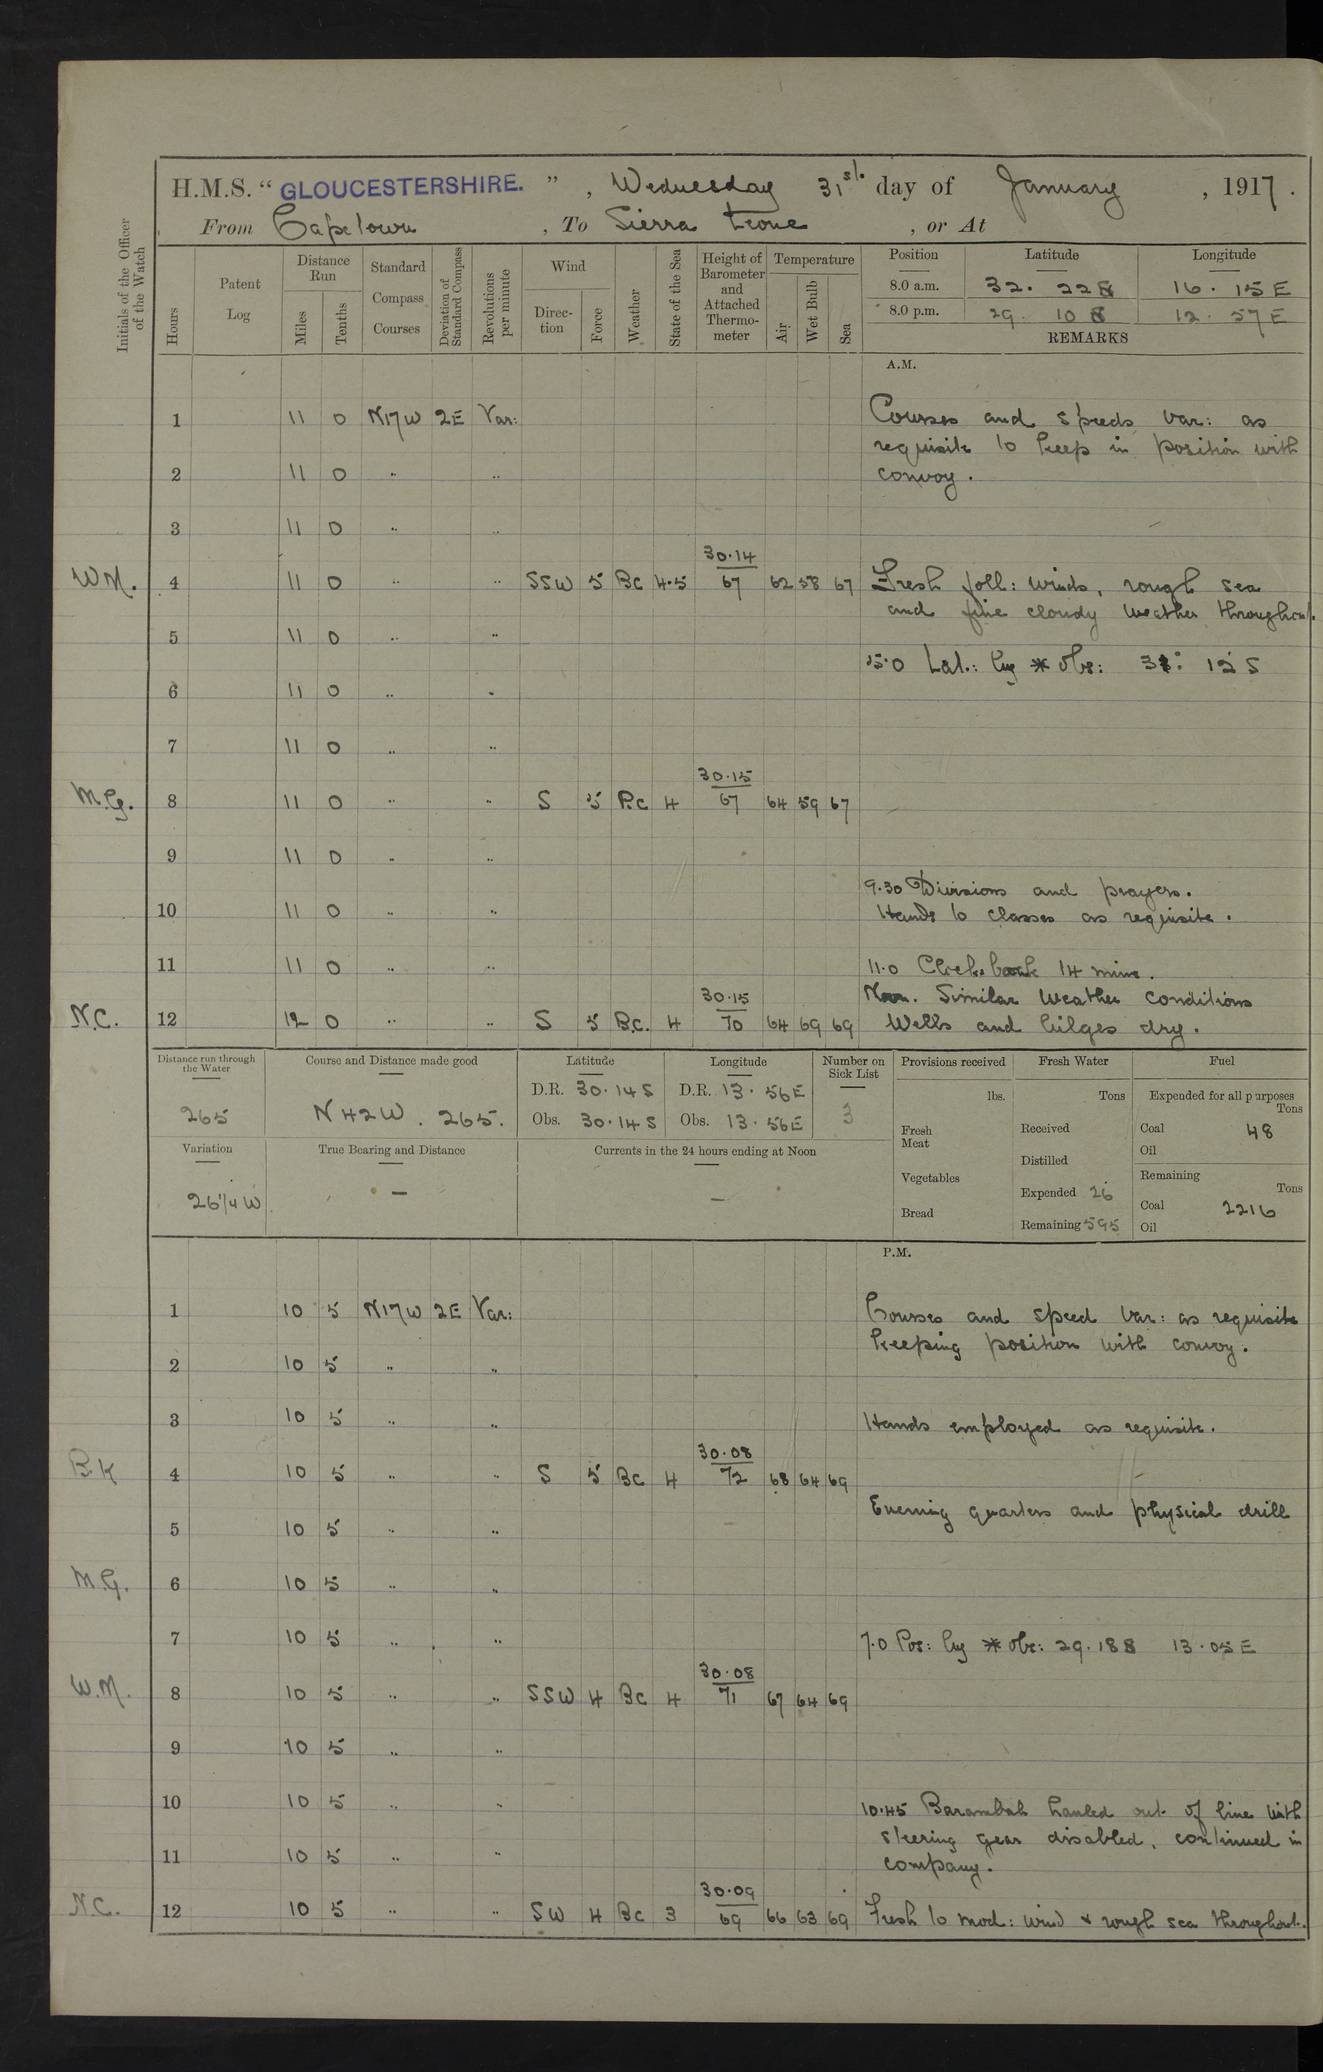 H.M.S. “ GLOUCESTERSHIRE. ” , Wednesday 31st. day of January , 1917 .
From Capetown , To Sierra Leone , or At
Initials of the Officer of the Watch
Hours
Patent Log
Distance Run
Miles
Tenths
Standard Compass Courses
Deviation of Standard Compass
Revolutions per minute
Wind
Direction
Force
Weather
State of the Sea
Height of Barometer and Attached Thermometer
Temperature
Air
Wet Bulb
Sea
Position Latitude Longitude
8.0 a.m. 32. 22 S 16. 15 E
8.0 p.m. 29. 10 S 12. 57 E
REMARKS
A.M.
1 11 0 N17W 2E Var: Courses and speeds var: as
requisite to keep in position with
2 11 0 " " convoy.
3 11 0 " "
30.14
W.M. 4 11 0 " " SSW 5 Bc 4.5 67 62 58 67 Fresh foll: winds, rough sea
and fine cloudy weather throughout.
5 11 0 " "
5.0 Lat.: by * obs: 12 S
6 11 0 " "
7 11 0 " "
30.15
M.G. 8 11 0 " " S 5 Bc 4 67 64 59 67
9 11 0 " "
9.30 Divisions and prayers.
10 11 0 " " Hands to classes as requisite.
11 11 0 " " 11.0 Clocks back 14 mins.
30.15 Noon. Similar weather conditions
N.C. 12 12 0 " " S 5 B.c. 4 70 64 69 69 Wells and bilges dry.
Distance run through the Water
265
Course and Distance made good
N 42 W . 265.
Latitude
D.R. 30.14 S
Obs. 30.14 S
Longitude
D.R. 13. 56 E
Obs. 13. 56 E
Number on Sick List
3
Provisions received
lbs.
Fresh Meat
Vegetables
Bread
Fresh Water
Tons
Received
Distilled
Expended 26
Remaining 595
Fuel
Expended for all purposes
Tons
Coal 48
Oil
Remaining
Tons
Coal 2216
Oil
Variation
26 1/4 W
True Bearing and Distance
—
Currents in the 24 hours ending at Noon
—
P.M.
1 10 5 N17W 2E Var: Courses and speed var: as requisite
keeping position with convoy.
2 10 5 " "
3 10 5 " " Hands employed as requisite.
30.08
B.K 4 10 5 " " S 5 Bc 4 72 68 64 69
Evening quarters and physical drill
5 10 5 " "
M.G. 6 10 5 " "
7 10 5 " " 7.0 Pos: by * obs: 29.18 S 13.05 E
30.08
W.M. 8 10 5 " " SSW 4 Bc 4 71 67 64 69
9 10 5 " "
10 10 5 " " 10.45 Barambah hauled out of line with
steering gear disabled, continued in
11 10 5 " " company.
30.09
N.C. 12 10 5 " " SW 4 Bc 3 69 66 63 69 Fresh to mod: wind & rough sea throughout.